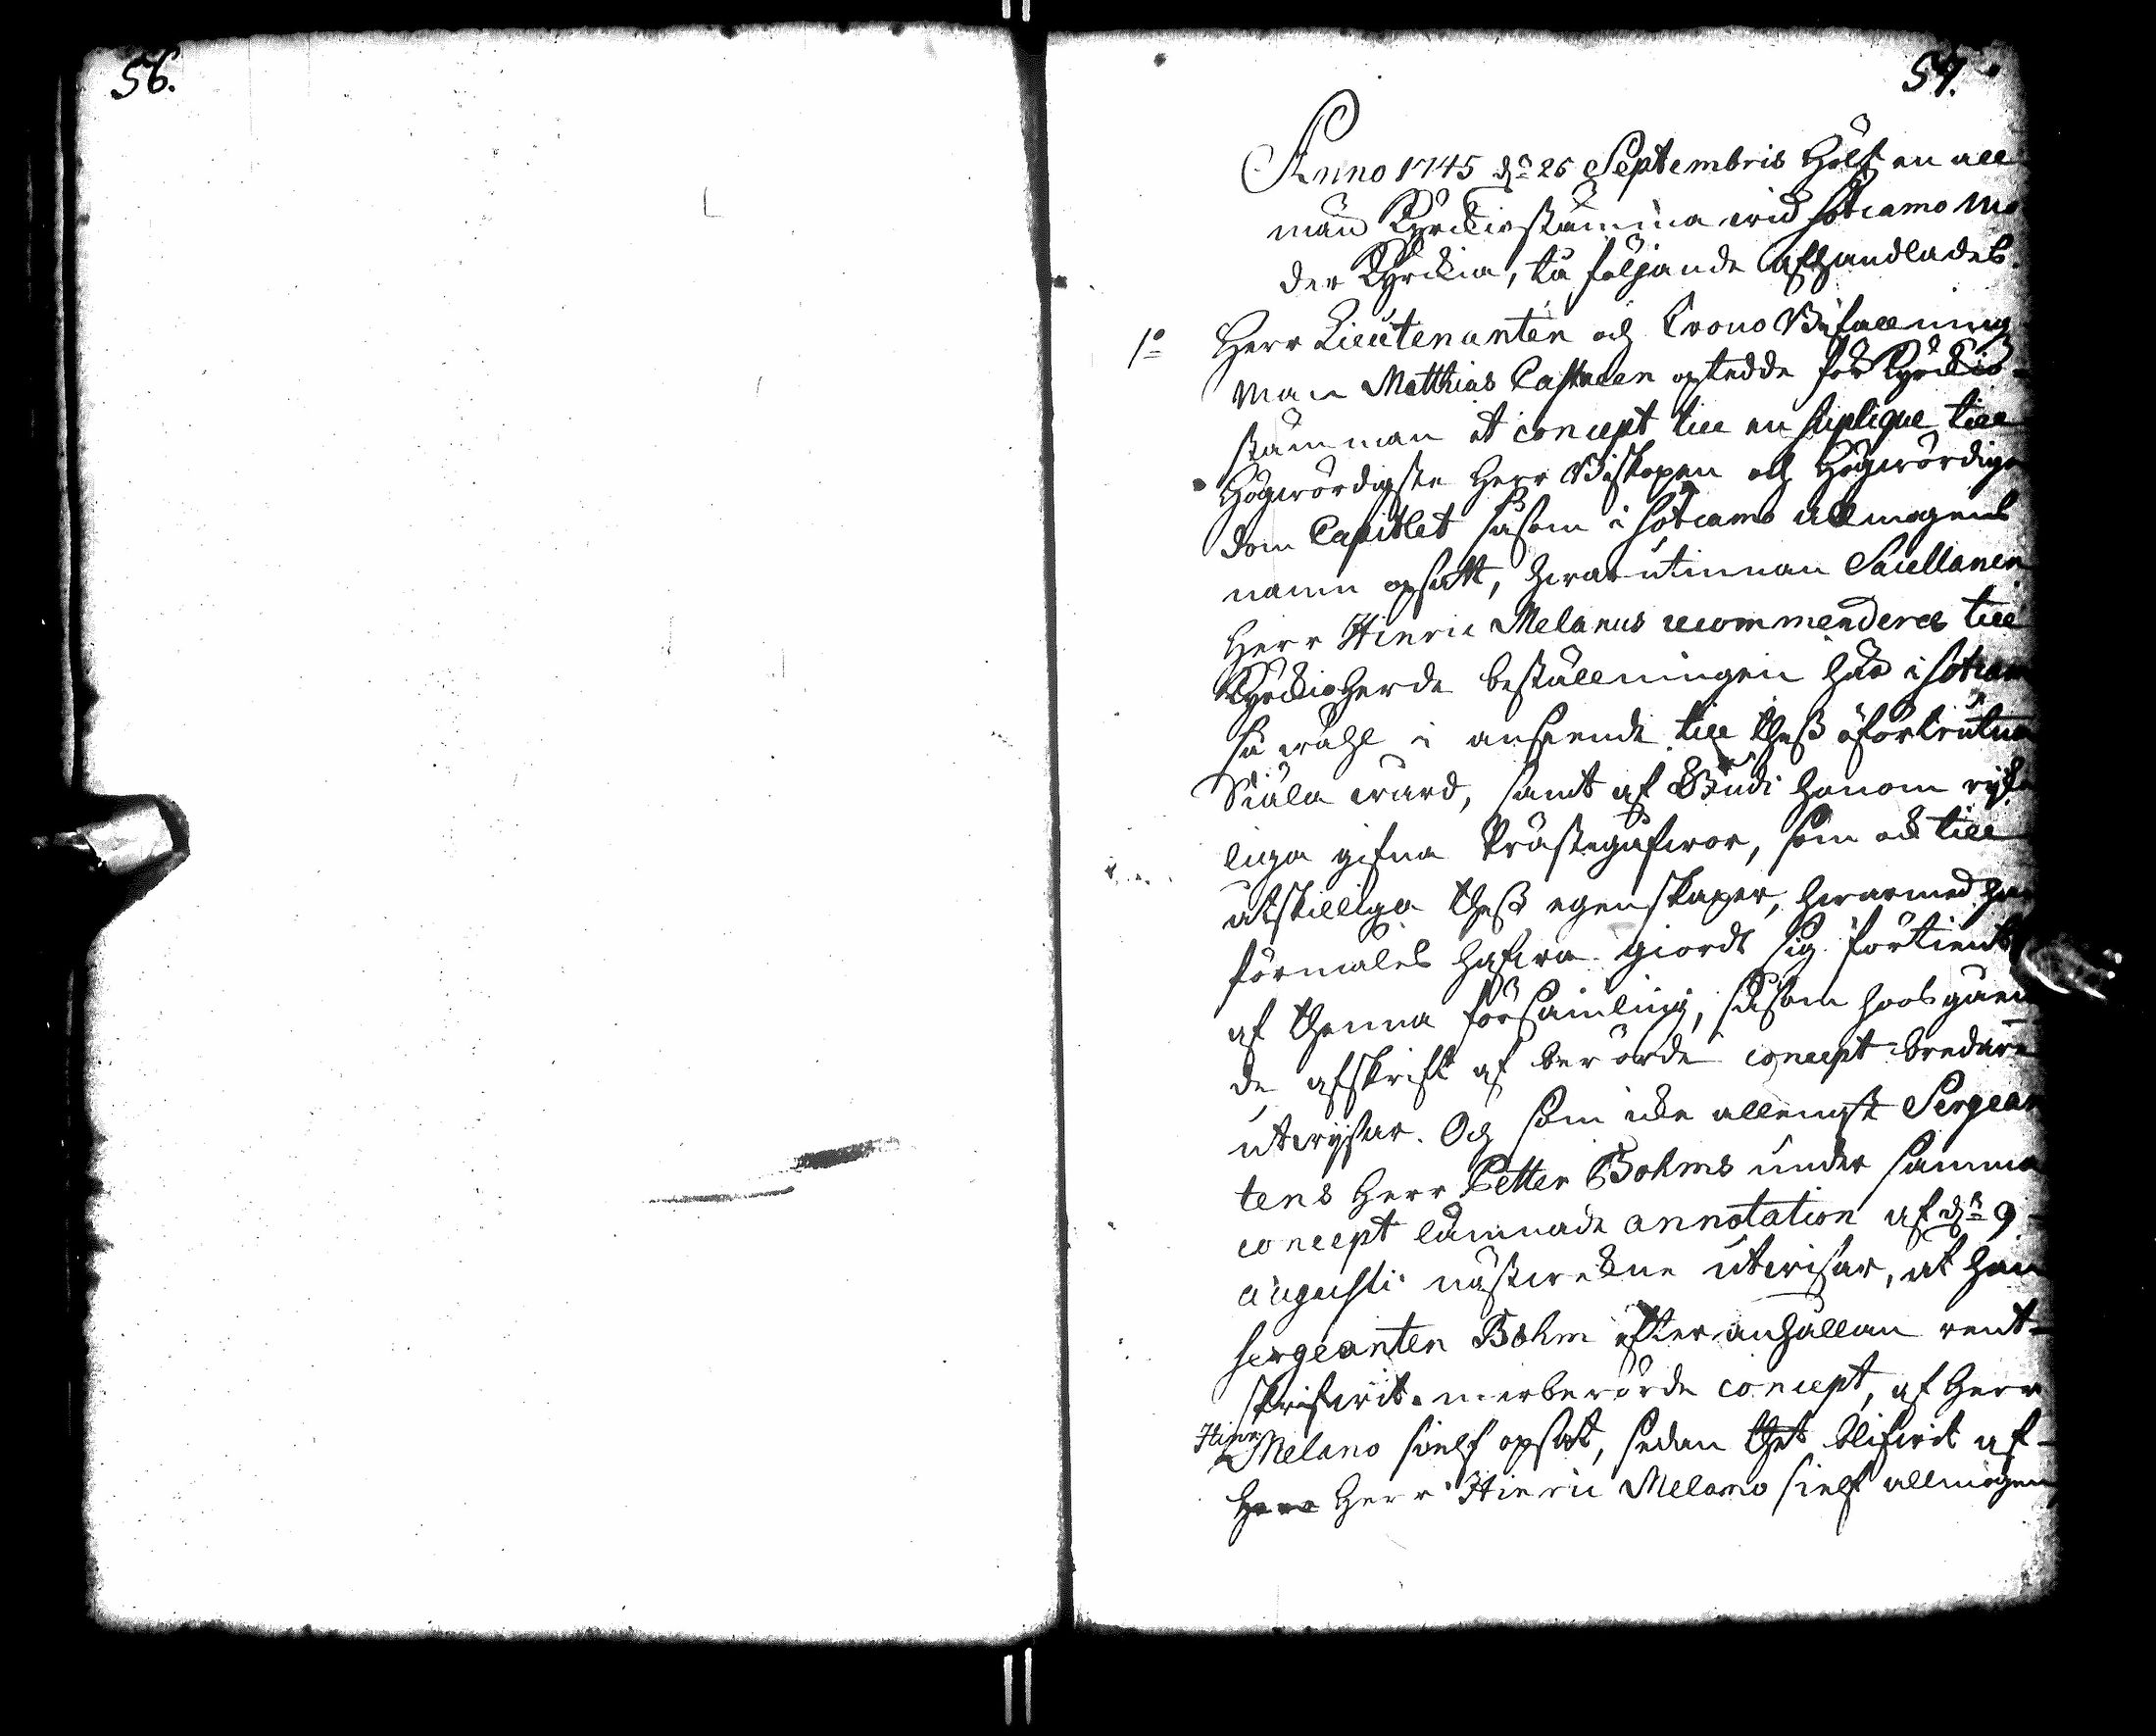 56.
57.
Anno 1745 dn 26 Septembris hölts en all
män Kyrckiostämma wid Sotcamo Mo
der Kyrckia, tå följande afhandlades.
1o Herr Lieutenanten och Crono Befallning
Man Matthias Castreen optedde för Kyrckio-
stämman et concept till en suplique till
Högwördigste Herr Biskopen och Högwördiga
Dom Capitlet såsom i Sotcamo allmogens
namn opsatt, hwarutinnan Sacellanen
Herr Hinric Melanus recommenderes till
Kyrckioherde beställningen här i Sotcam
så wähl i anseende till thess oförtrutna
Siäla wård, samt af Gudi honom rike
liga gifna Prästegåfwor, som ock till
åtskilliga thess egenskaper, hwarmed han
förmäles hafwa giordt sig förtient
af thenna församling, såsom hoosgåen
de afskrift af berörde concept bredare
utwijsar. Och som icke allenast Sergean
tens Herr Petter Bohms under samma
concept lämnade annotation af dn 9
augusti nästwekne utwisar, at han
sergeanten Bohm efter anhållan rent-
skrifwit merberörde concept, af Herr
Hinr: Melano sielf opsat, sedan thet blifwit af-
Herr Herr Hinric Melano sielf allmogen